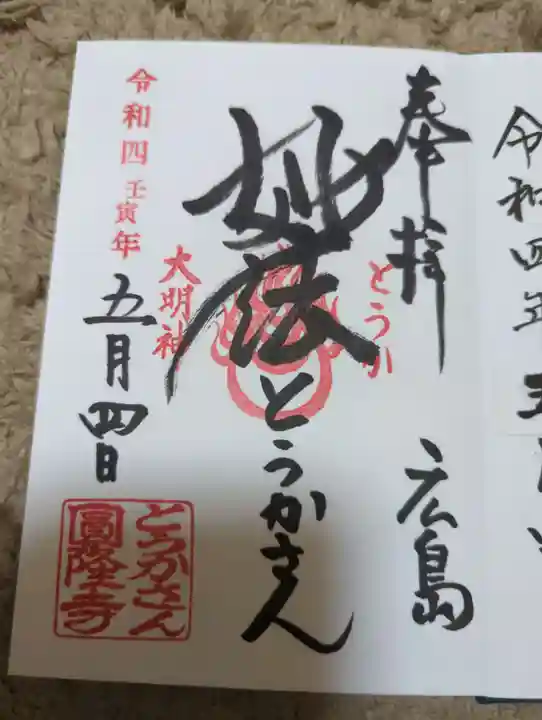 令和四年五月
奉拝
広島
とうか
妙法
とうかさん
大明神
令和四壬寅年
五月四日
とうかさん
圓隆寺